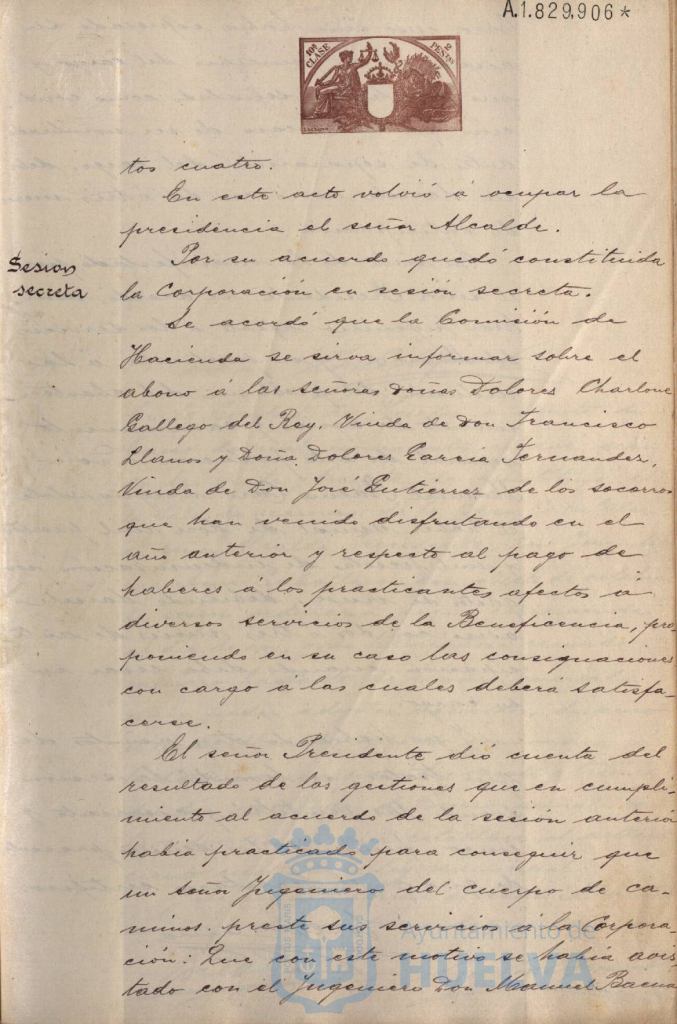 A.1.829,906*
10ª CLASE
2 PESETAS
tos cuatro.
En este acto volvió á ocupar la
presidencia el señor Alcalde.
Sesion
secreta
Por su acuerdo quedó constituida
la Corporación en sesión secreta.
Se acordó que la Comisión de
Hacienda se sirva informar sobre el
abono á las señoras doñas Dolores Charlone
Gallego del Rey, Viuda de don Francisco
Llanos y Doña Dolores Garcia Fernandez,
Viuda de Don José Gutiérrez de los socorros
que han venido disfrutando en el
año anterior y respecto al pago de
haberes á los practicantes afectos á
diversos servicios de la Beneficencia, pro-
poniendo en su caso las consignaciones
con cargo á las cuales deberá satisfa-
cerse.
El señor Presidente dió cuenta del
resultado de las gestiones que en cumpli-
miento al acuerdo de la sesión anterior
habia practicado para conseguir que
un señor Ingeniero del cuerpo de ca-
minos. preste sus servicios á la Corpora-
ción: Que con este motivo se habia avis-
tado con el Ingeniero Don Manuel Baena
Ayuntamiento de
HUELVA